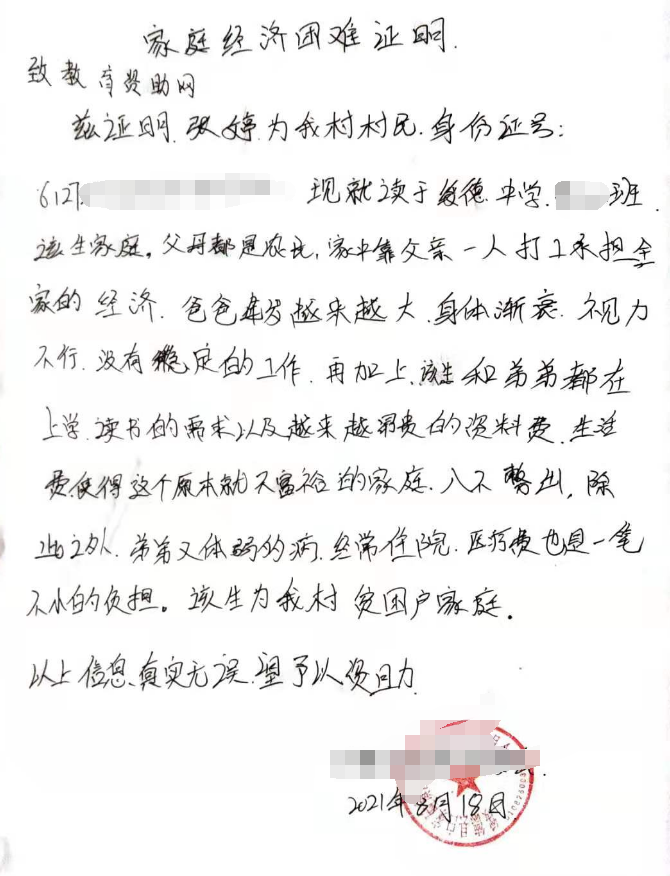 家庭经济困难证明.
致教育资助网
兹证明.张婷为我村村民.身份证号:
6127 现就读于绥德.中学. 班
该生家庭。父母都是农民,家中靠父亲一人打工承担全
家的经济.爸爸年岁越来越大.身体渐衰.视力
不行.没有稳定的工作.再加上.该生和弟弟都在
上学.读书的需求以及越来越昂贵的资料费.生活
费.使得这个原本就不富裕的家庭.入不敷出,除
此之外.弟弟又体弱的病.经常住院.医疗费也是一笔
不小的负担。该生为我村贫困户家庭.
以上信息.真实无误.望予以资助
2021年8月18日